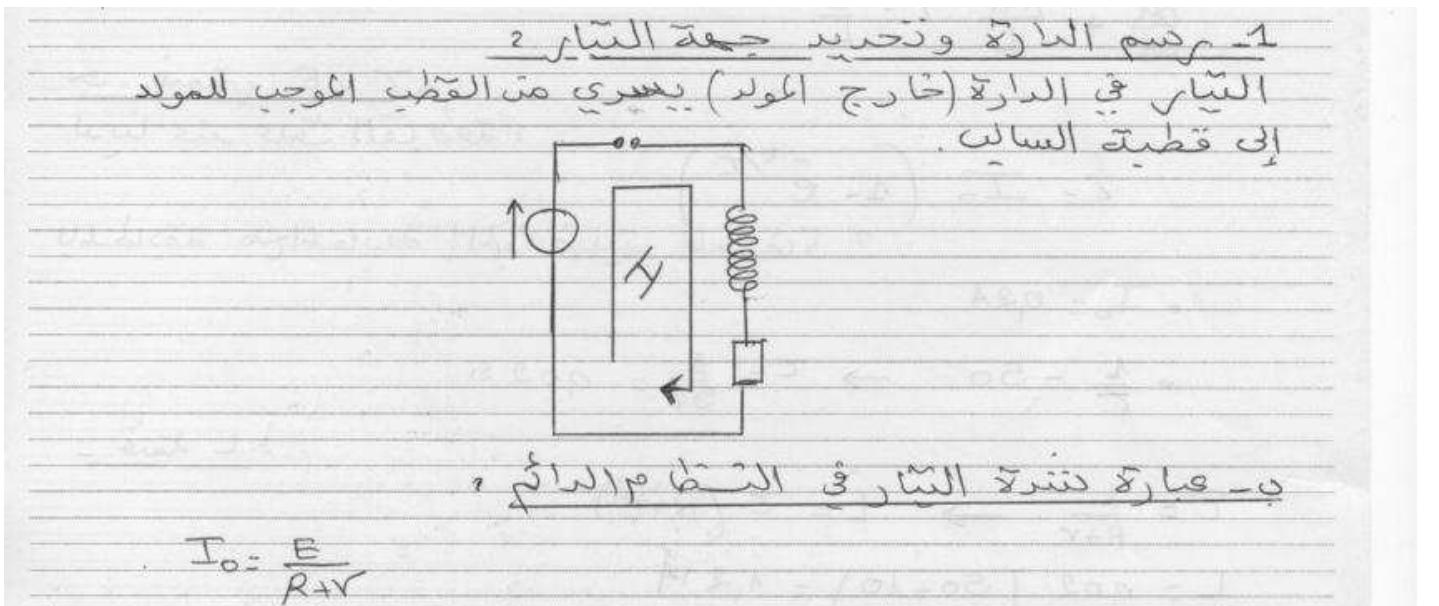 1- رسم الدارة وتحديد جهة التيار :
التيار في الدارة (خارج المولد) يسري من القطب الموجب للمولد
إلى قطبه السالب .
H
ب - عبارة شدة التيار في النظام الدائم :
I₀ = E / R+r